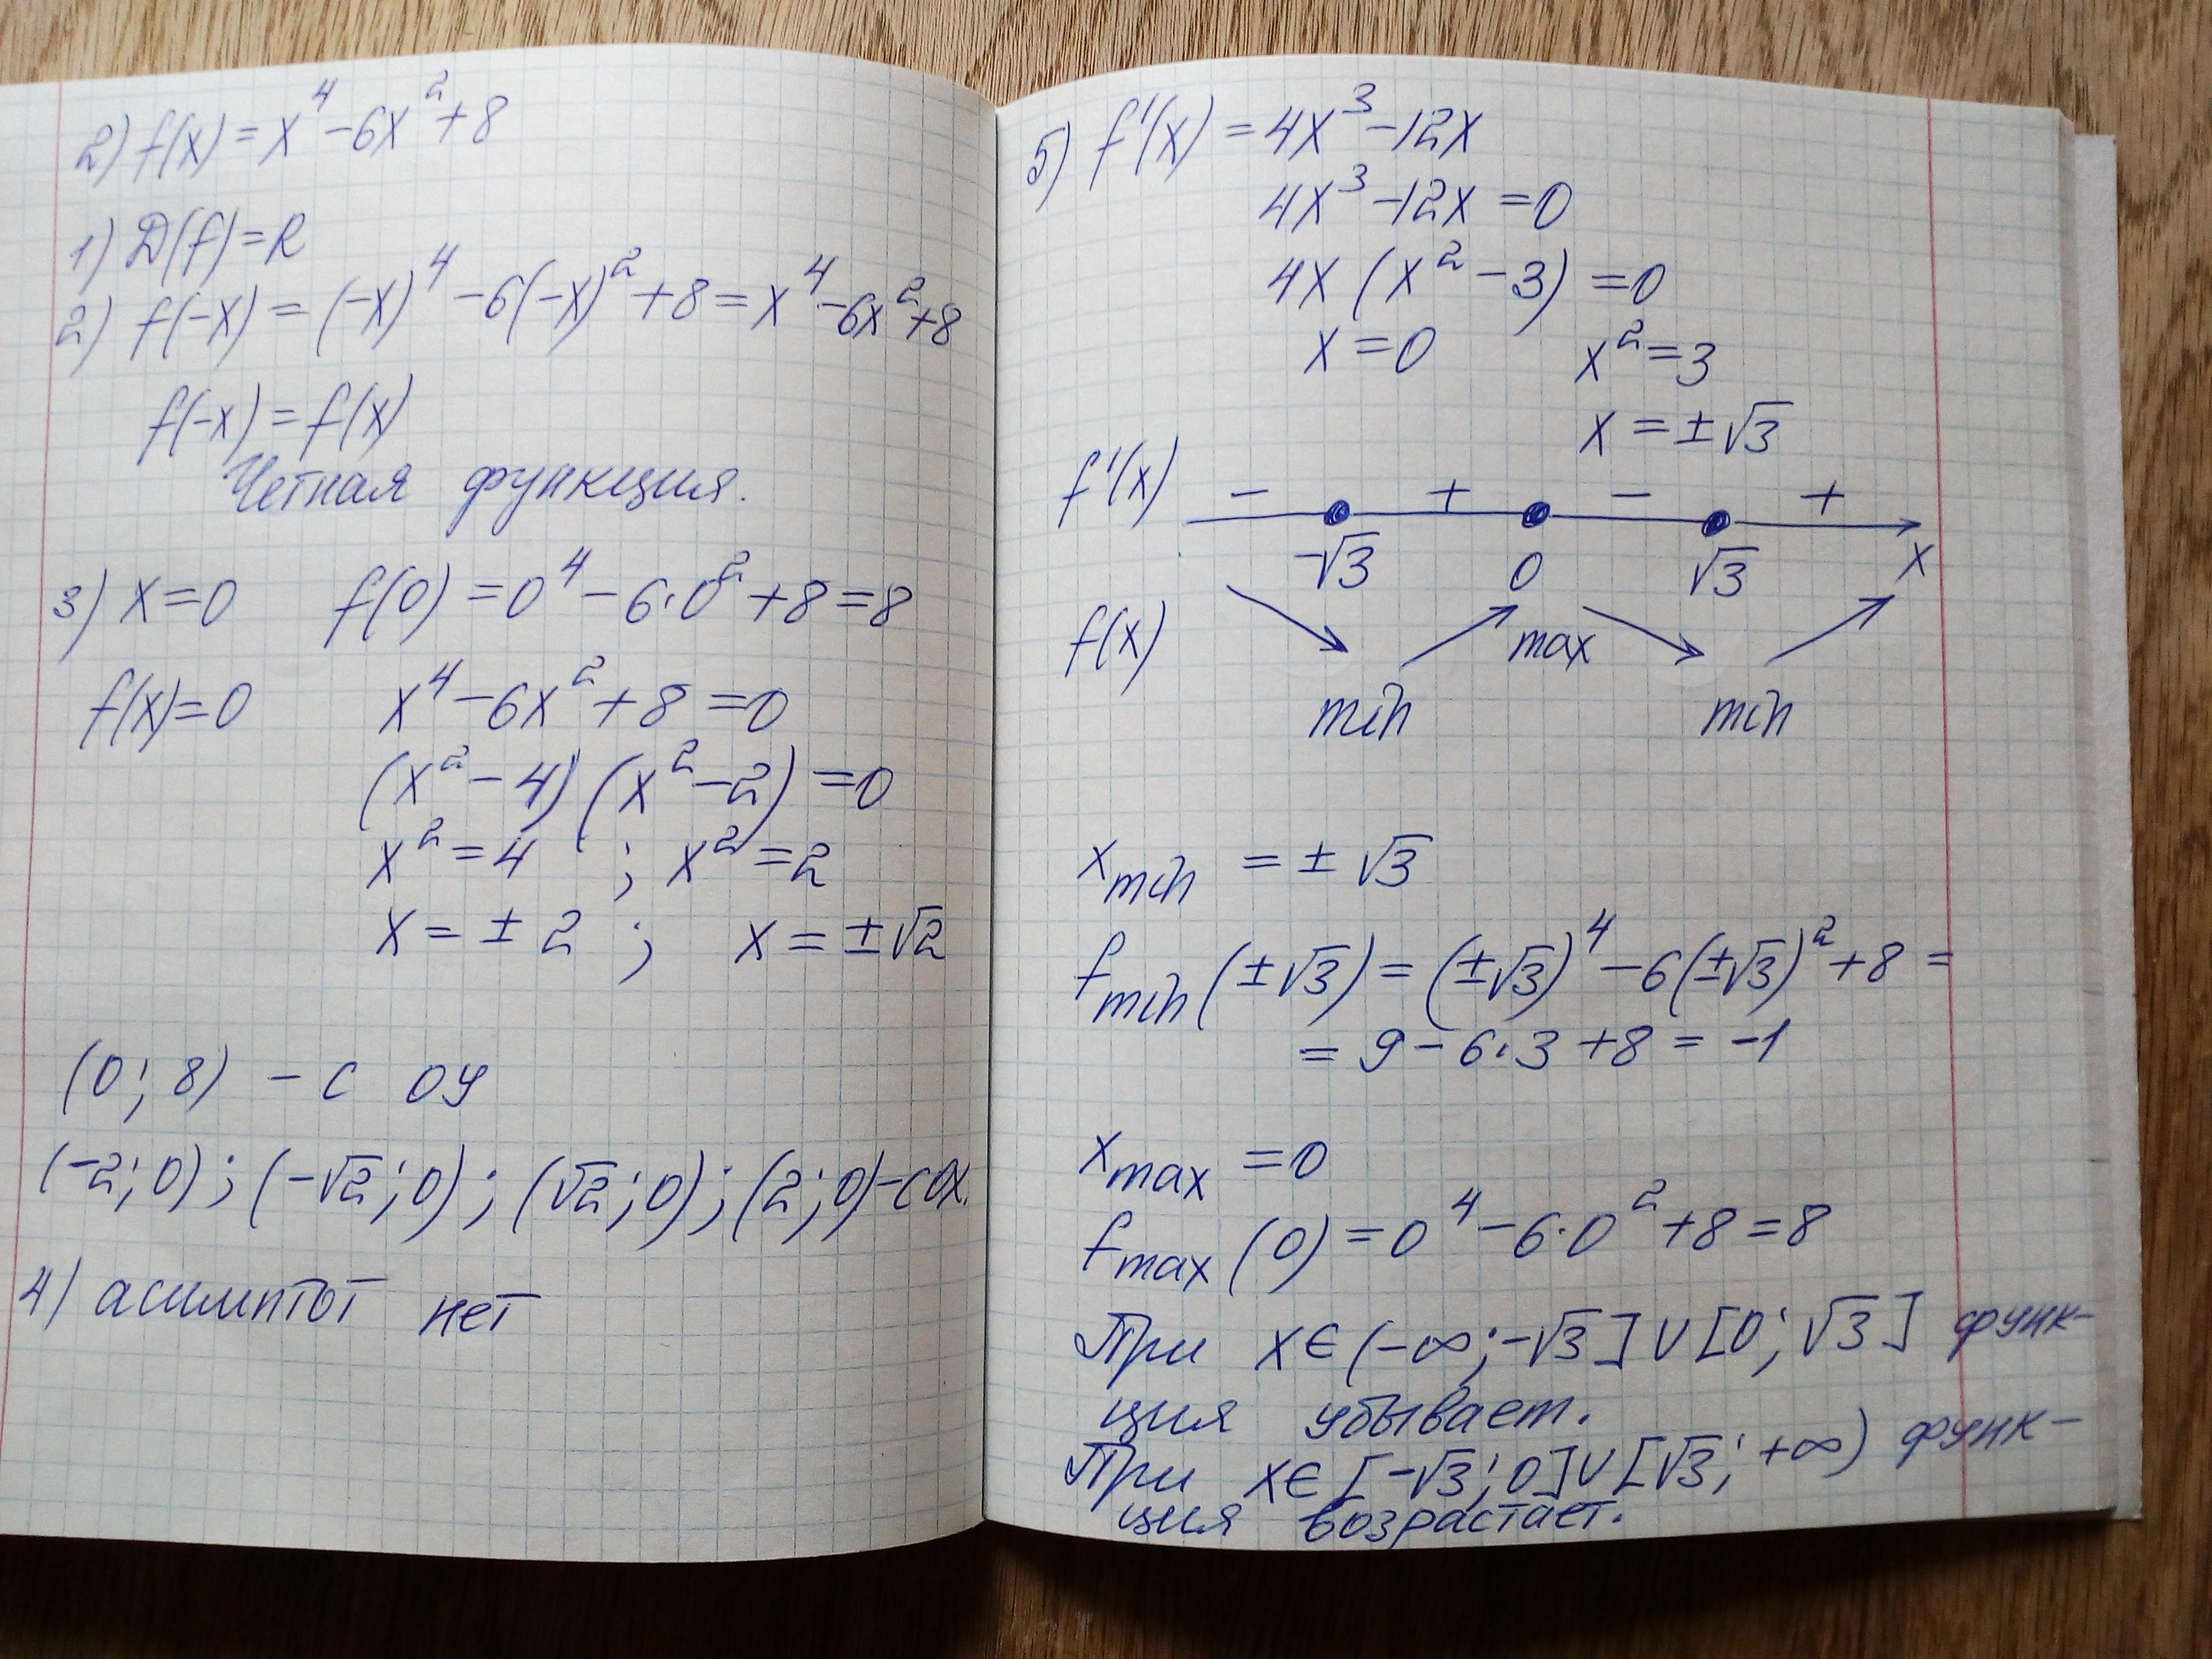 2) f(x) = x⁴ - 6x² + 8
1) D(f) = R
2) f(-x) = (-x)⁴ - 6(-x)² + 8 = x⁴ - 6x² + 8
f(-x) = f(x)
Четная функция.
3) x = 0 f(0) = 0⁴ - 6·0² + 8 = 8
f(x) = 0 x⁴ - 6x² + 8 = 0
(x² - 4)(x² - 2) = 0
x² = 4 ; x² = 2
x = ± 2 ; x = ±√2
(0; 8) - с oy
(-2; 0); (-√2; 0); (√2; 0); (2; 0) - с ox.
4) асимптот нет
5) f'(x) = 4x³ - 12x
4x³ - 12x = 0
4x (x² - 3) = 0
x = 0 x² = 3
x = ±√3
f'(x) - + - +
-√3 0 √3 x
f(x) max
min min
x min = ± √3
f min (±√3) = (±√3)⁴ - 6(±√3)² + 8 =
= 9 - 6·3 + 8 = -1
x max = 0
f max (0) = 0⁴ - 6·0² + 8 = 8
При x ∈ (-∞; -√3] ∪ [0; √3] функ-
ция убывает.
При x ∈ [-√3; 0] ∪ [√3; +∞) функ-
ция возрастает.